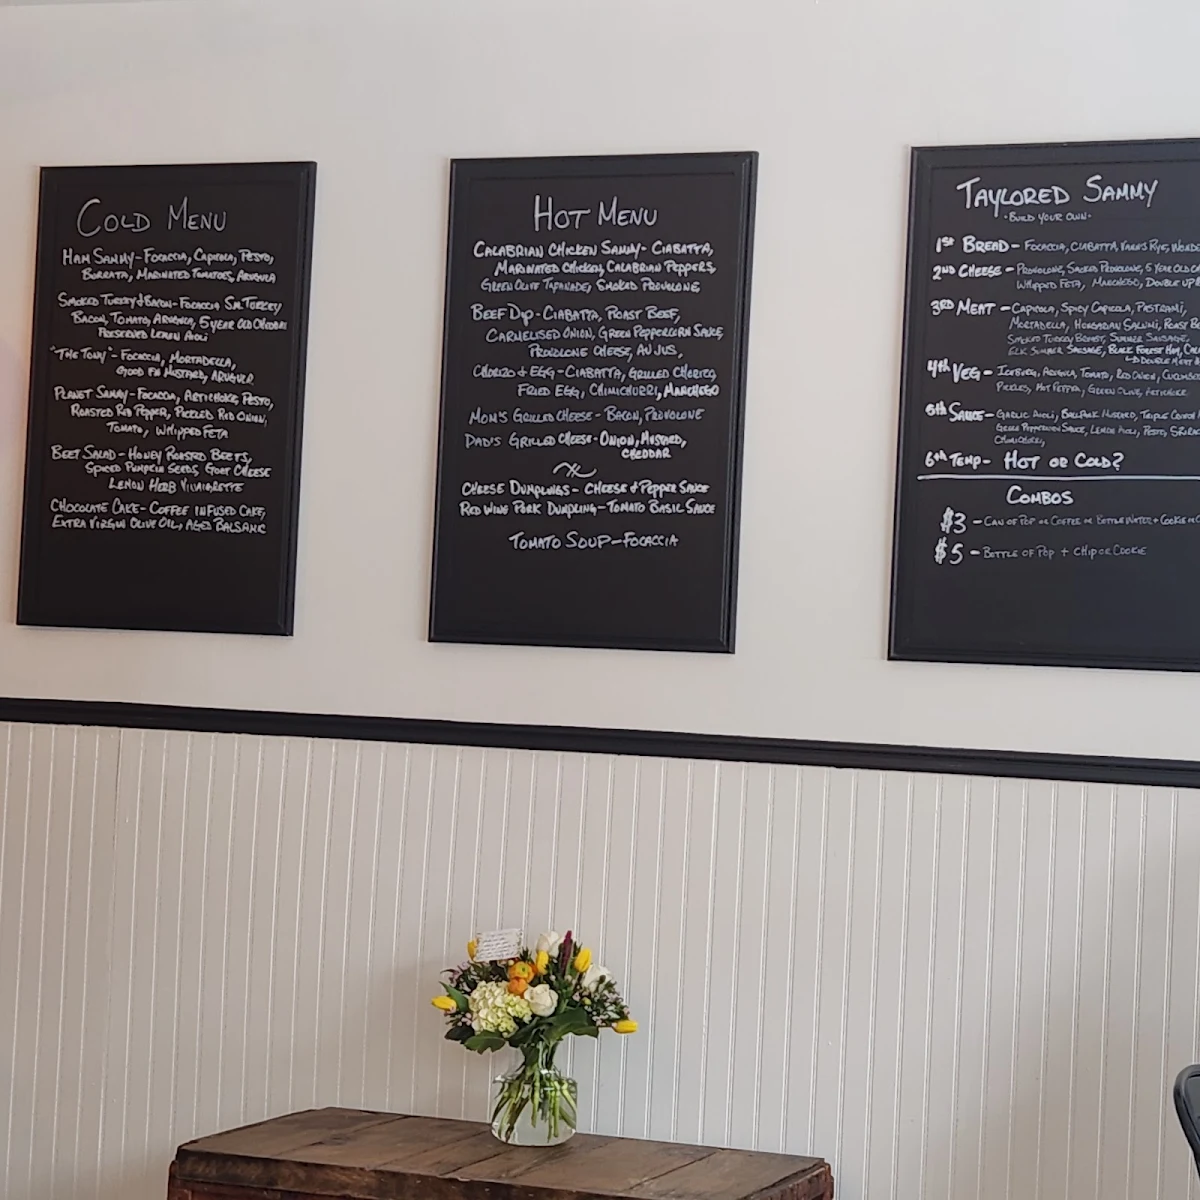 COLD MENU
HAM SAMMY - FOCACCIA, CAPICOLA, PESTO,
BURRATA, MARINATED TOMATOES, ARUGULA
SMOKED TURKEY & BACON - FOCACCIA SM. TURKEY
BACON, TOMATO, ARUGULA, 5 YEAR OLD CHEDDAR
PRESERVED LEMON AIOLI
"THE TONY" - FOCACCIA, MORTADELLA,
GOOD F'N MUSTARD, ARUGULA
PLANET SAMMY - FOCACCIA, ARTICHOKE, PESTO,
ROASTED RED PEPPER, PICKLED RED ONION,
TOMATO, WHIPPED FETA
BEET SALAD - HONEY ROASTED BEETS,
SPICED PUMPKIN SEEDS, GOAT CHEESE
LEMON HERB VINAIGRETTE
CHOCOLATE CAKE - COFFEE INFUSED CAKE,
EXTRA VIRGIN OLIVE OIL, AGED BALSAMIC
HOT MENU
CALABRIAN CHICKEN SAMMY - CIABATTA,
MARINATED CHICKEN, CALABRIAN PEPPERS,
GREEN OLIVE TAPANADE, SMOKED PROVOLONE
BEEF DIP - CIABATTA, ROAST BEEF,
CARMELISED ONION, GREEN PEPPERCORN SAUCE,
PROVOLONE CHEESE, AU JUS,
CHORIZO & EGG - CIABATTA, GRILLED CHORIZO,
FRIED EGG, CHIMICHURRI, MANCHEGO
MOM'S GRILLED CHEESE - BACON, PROVOLONE
DAD'S GRILLED CHEESE - ONION, MUSTARD,
CHEDDAR
CHEESE DUMPLINGS - CHEESE & PEPPER SAUCE
RED WINE PORK DUMPLING - TOMATO BASIL SAUCE
TOMATO SOUP - FOCACCIA
TAYLORED SAMMY
- BUILD YOUR OWN -
1ST BREAD - FOCACCIA, CIABATTA, RYE,
2ND CHEESE - PROVOLONE, SMOKED PROVOLONE, 5 YEAR OLD
WHIPPED FETA, MANCHEGO, DOUBLE UP
3RD MEAT - CAPICOLA, SPICY CAPICOLA, PASTRAMI,
MORTADELLA, HUNGARIAN SALAMI, ROAST
SMOKED TURKEY BREAST, SUMMER SAUSAGE,
ELK SUMMER SAUSAGE, BLACK FOREST HAM,
DOUBLE MEAT
4TH VEG - ICEBURG, ARUGULA, TOMATO, RED ONION,
PICKLES, HOT PEPPER, GREEN OLIVE, ARTICHOKE
5TH SAUCE - GARLIC AIOLI, BALLPARK MUSTARD, TRIPLE
GREEN PEPPERCORN SAUCE, LEMON AIOLI, PESTO,
CHIMICHURRI,
6TH TEMP - HOT OR COLD?
COMBOS
$3 - CAN OF POP OR COFFEE OR BOTTLE WATER + COOKIE
$5 - BOTTLE OF POP + CHIP OR COOKIE